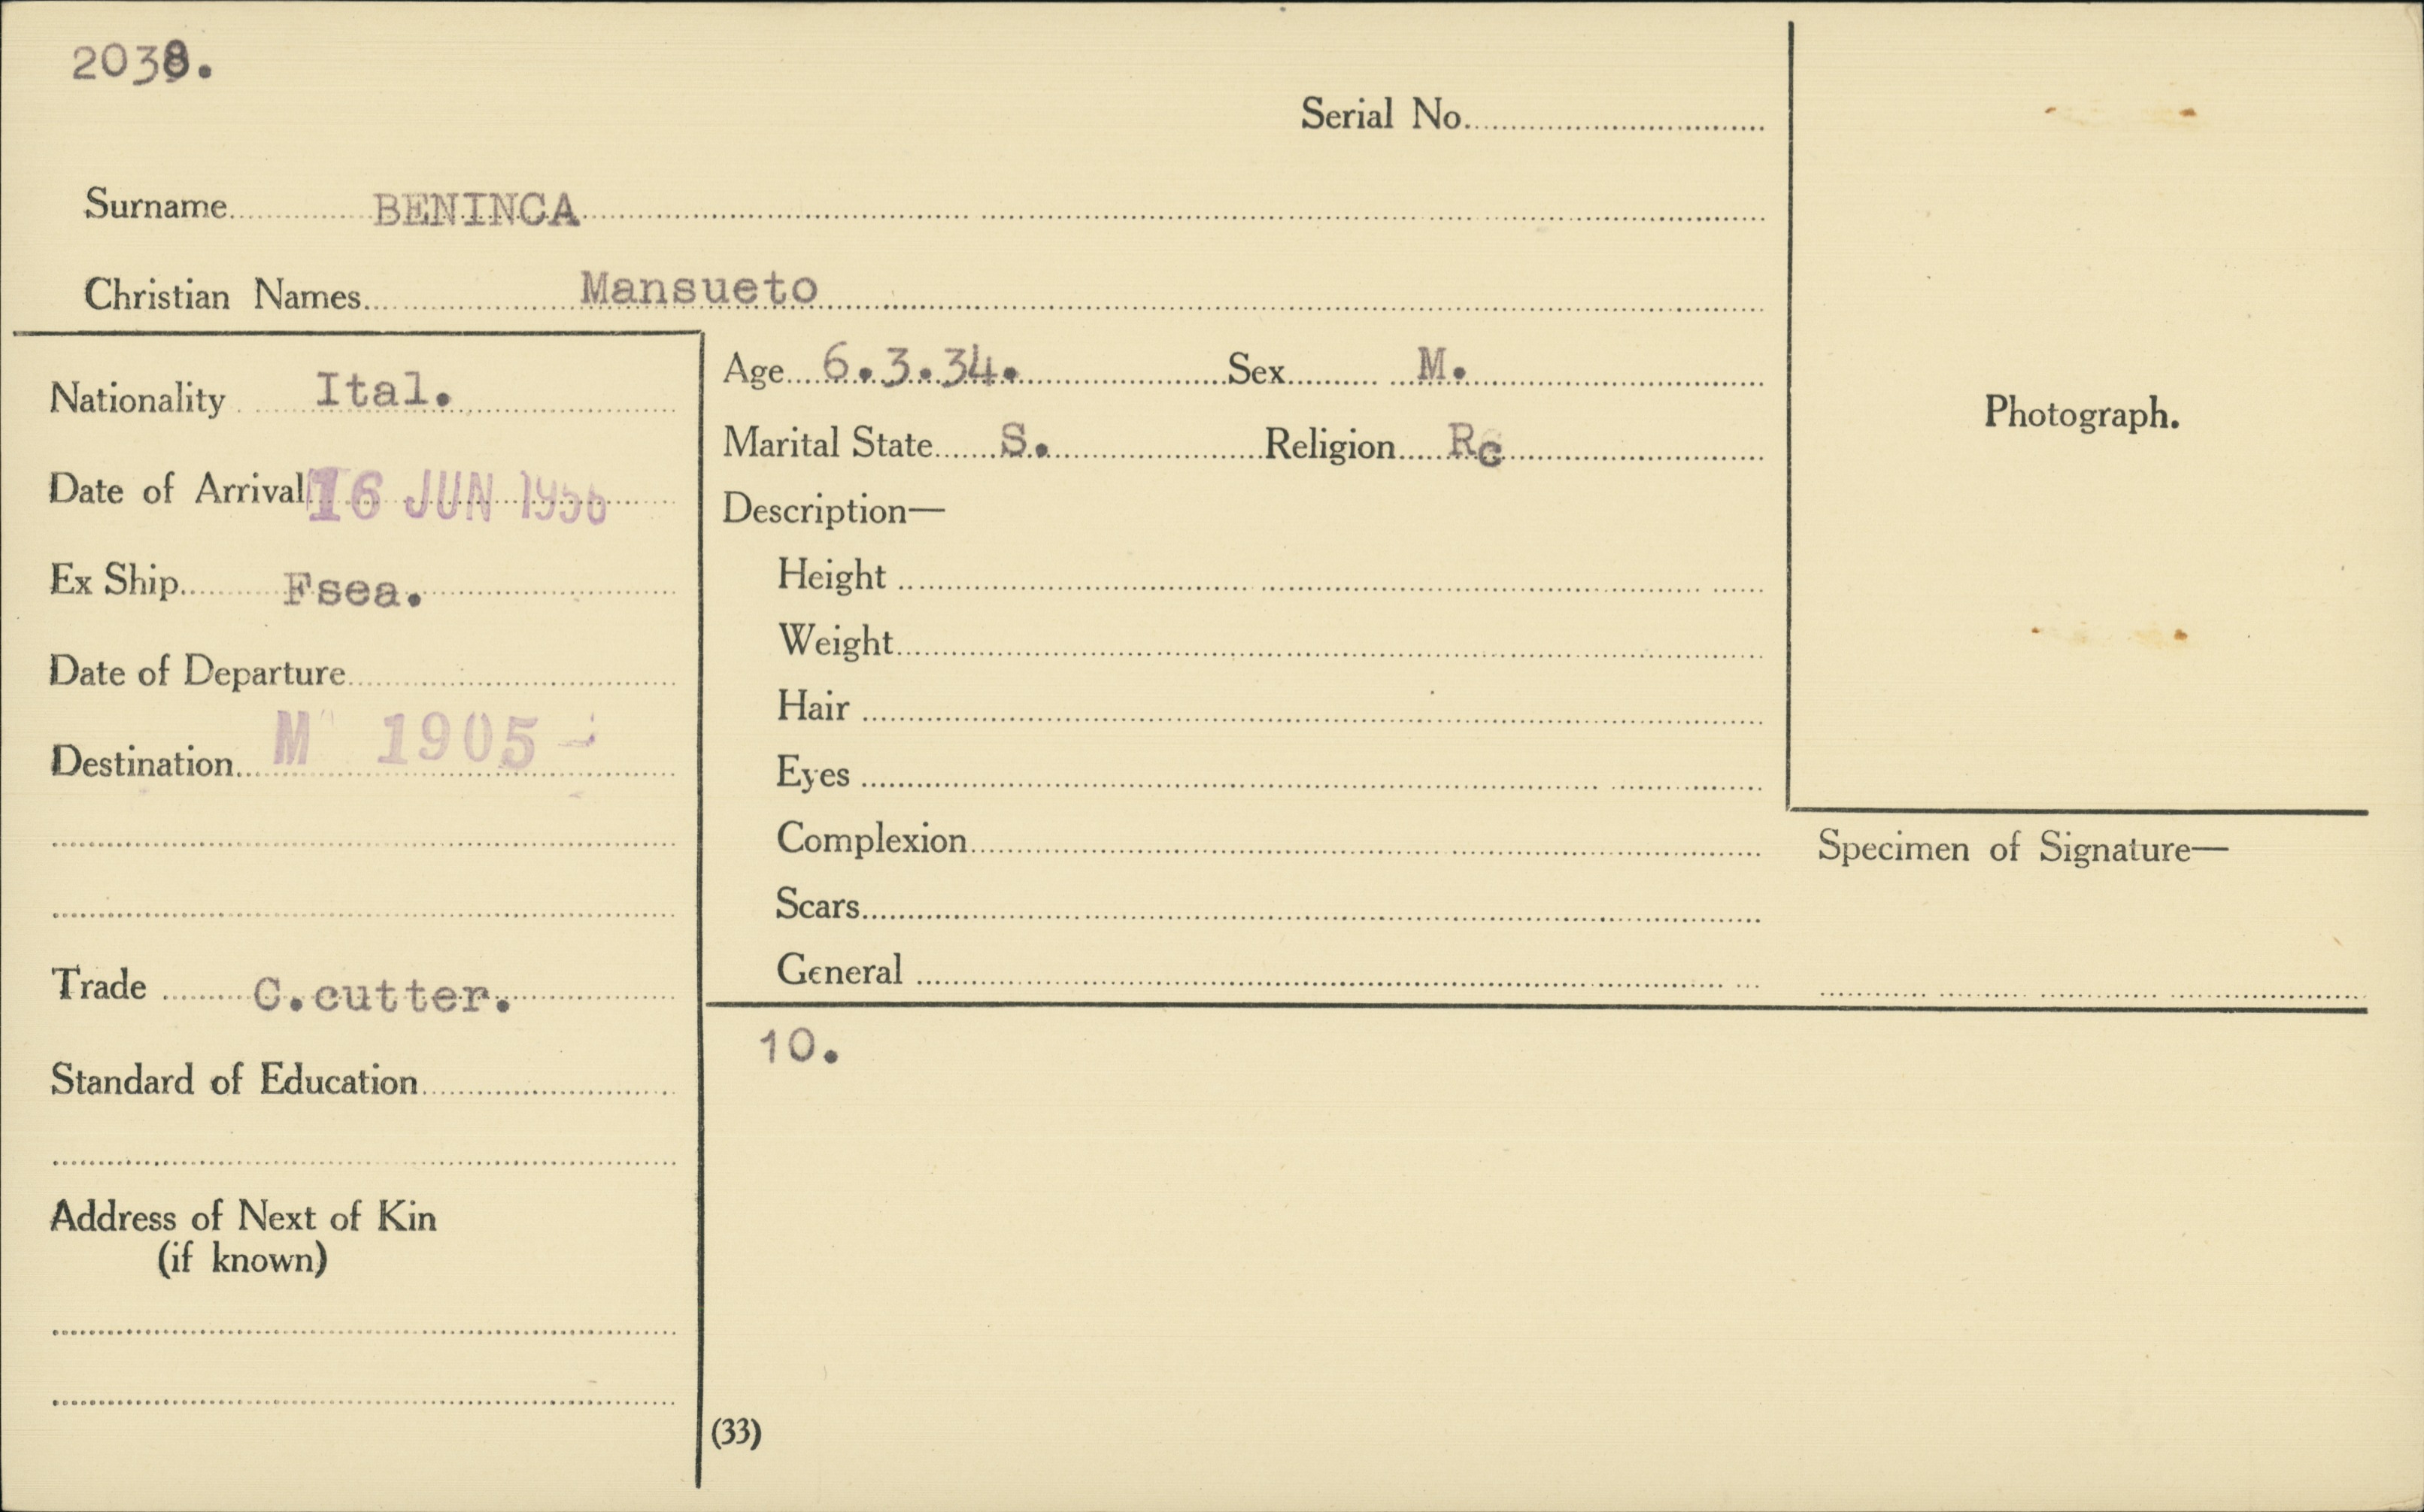 2038.
Serial No.
Surname BENINCA
Christian Names Mansueto
Nationality Ital.
Date of Arrival 16 JUN 1956
Ex Ship Fsea.
Date of Departure
Destination M 1905
Trade C.cutter.
Standard of Education
Address of Next of Kin
(if known)
Age 6.3.34. Sex M.
Marital State S. Religion Rc
Description—
Height
Weight
Hair
Eyes
Complexion
Scars
General
10.
(33)
Photograph.
Specimen of Signature—